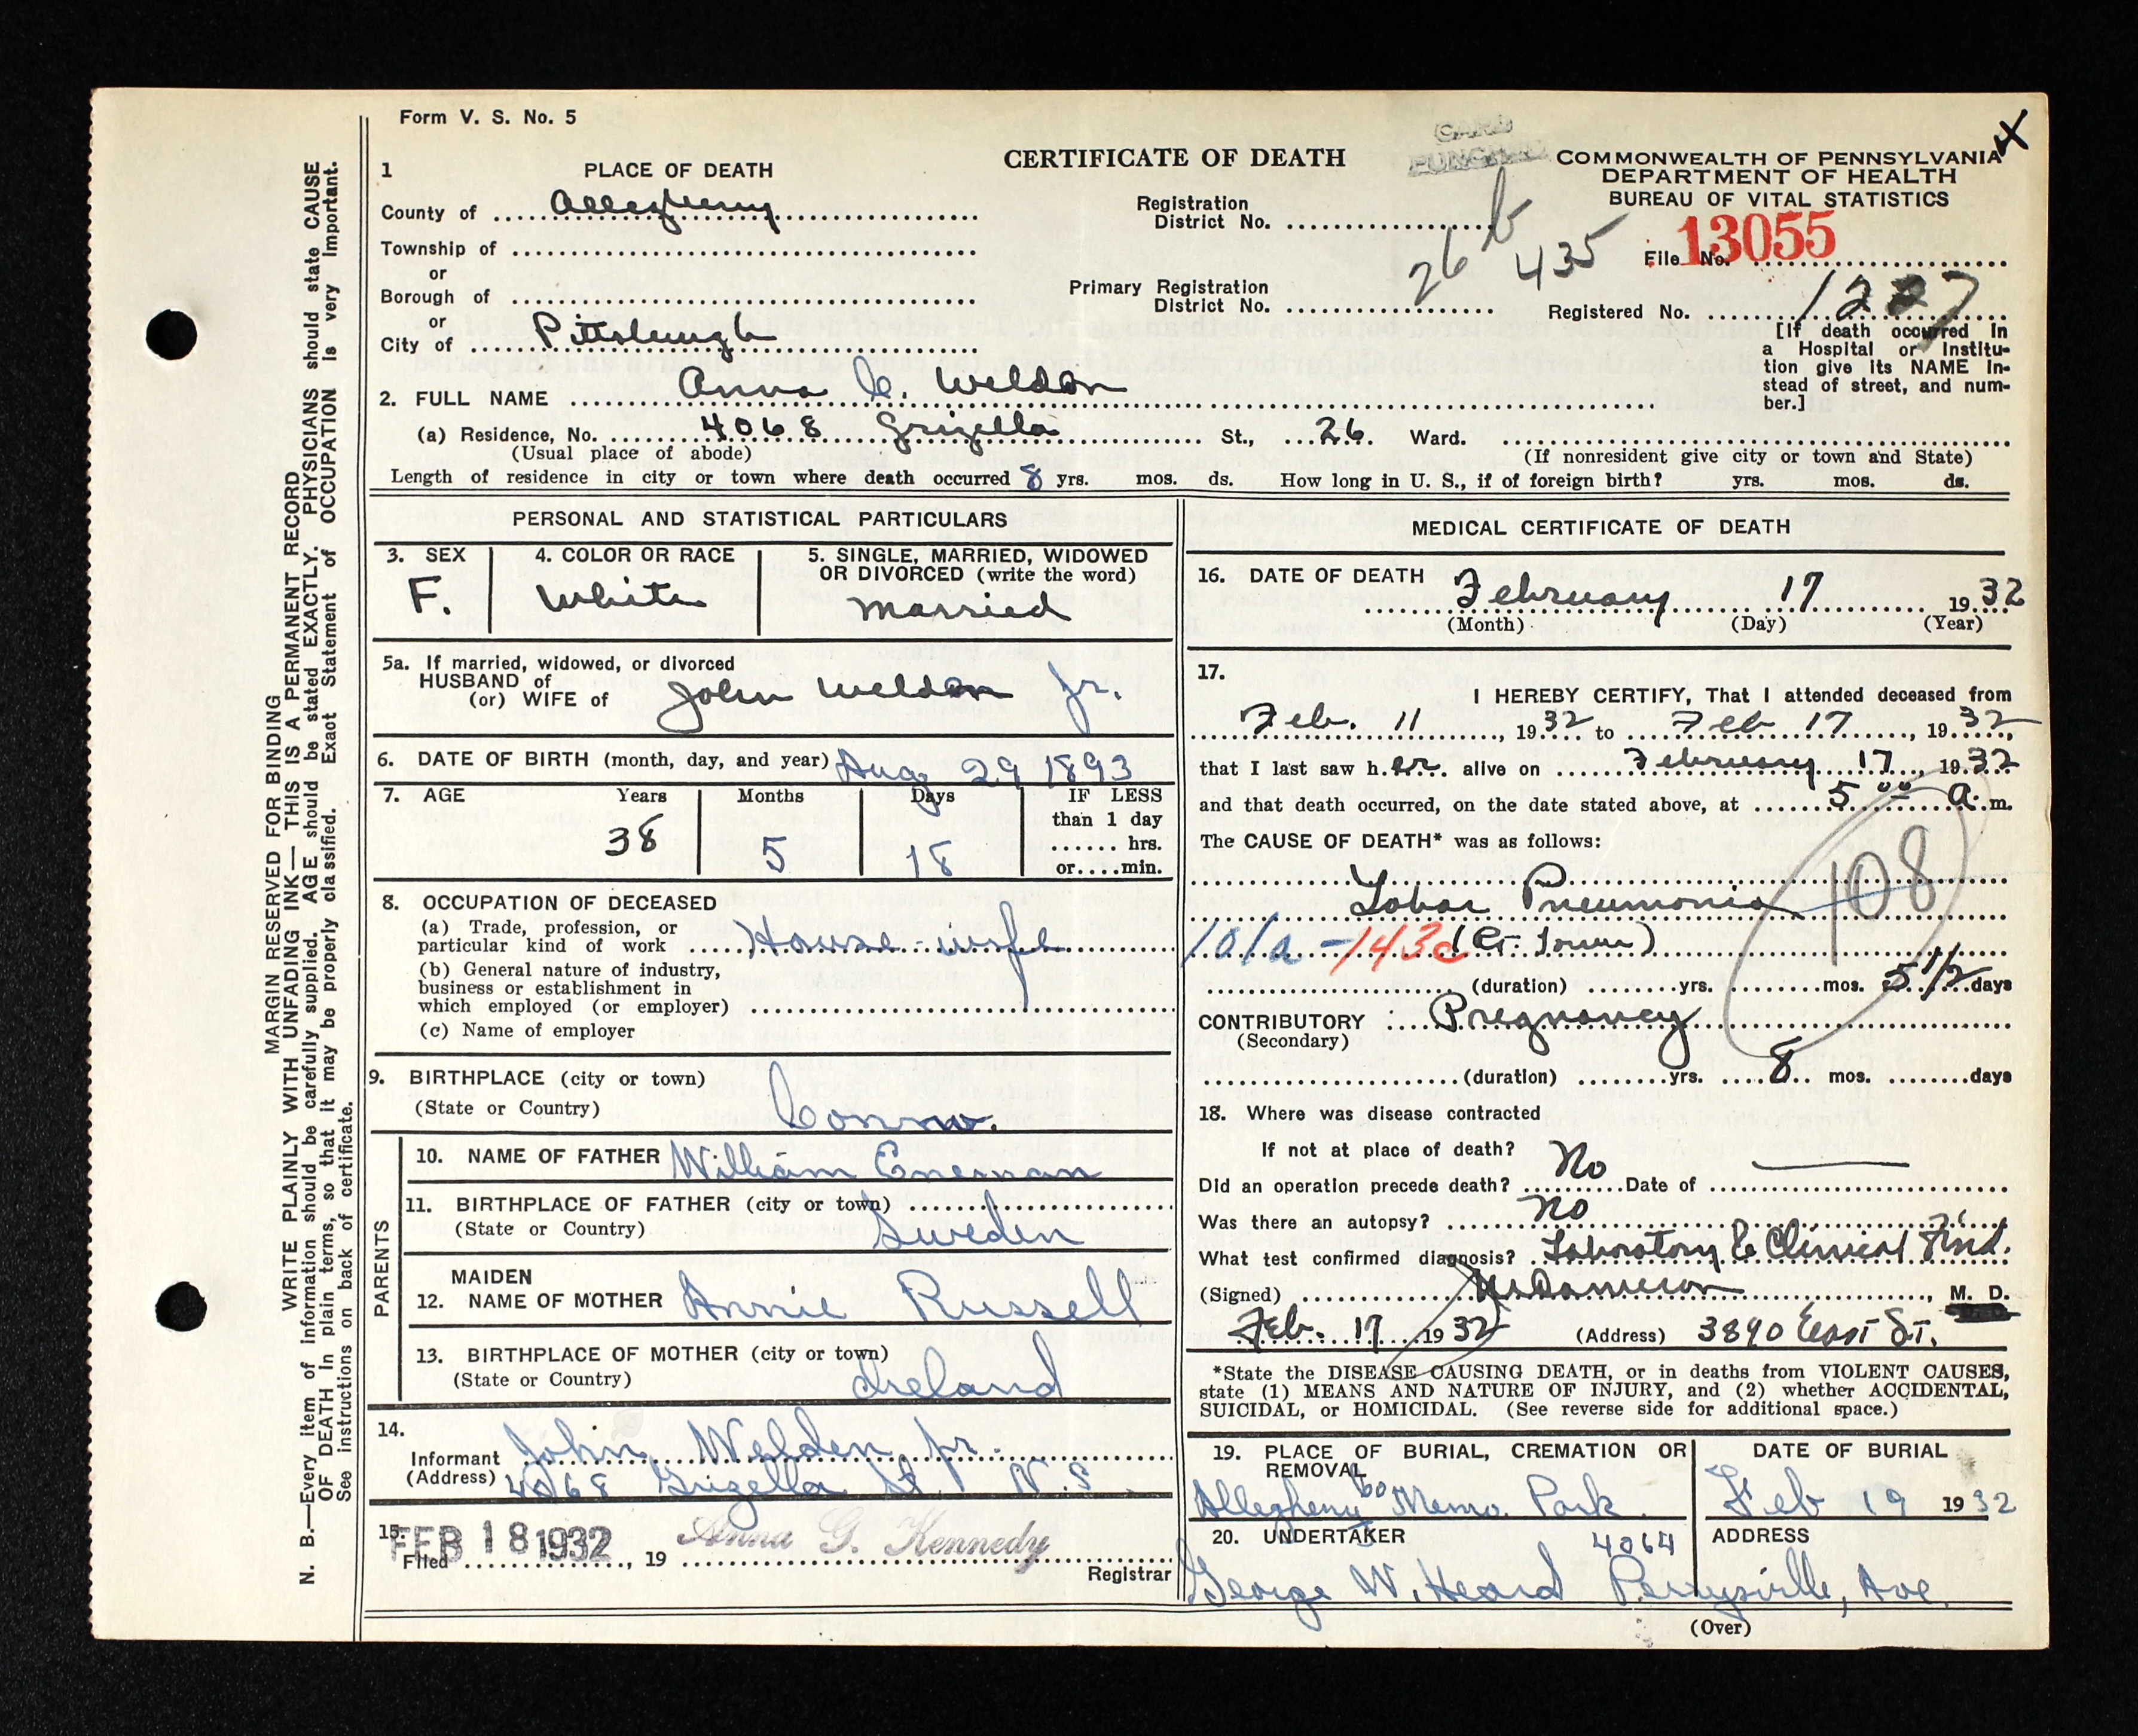 Form V. S. No. 5
CARD
PUNCHED
4
CERTIFICATE OF DEATH
COMMONWEALTH OF PENNSYLVANIA
DEPARTMENT OF HEALTH
BUREAU OF VITAL STATISTICS
1 PLACE OF DEATH
County of Allegheny
Township of
or
Borough of
or
City of Pittsburgh
Registration
District No.
Primary Registration
District No.
26 b
435
File No. 13055
Registered No. 1227
[If death occurred in
a Hospital or Institu-
tion give its NAME in-
stead of street, and num-
ber.]
2. FULL NAME Anna C. Weldon
(a) Residence, No. 4068 Grizella St., 26 Ward.
(Usual place of abode) (If nonresident give city or town and State)
Length of residence in city or town where death occurred 8 yrs. mos. ds. How long in U. S., if of foreign birth? yrs. mos. ds.
PERSONAL AND STATISTICAL PARTICULARS
3. SEX
F.
4. COLOR OR RACE
White
5. SINGLE, MARRIED, WIDOWED
OR DIVORCED (write the word)
Married
5a. If married, widowed, or divorced
HUSBAND of
(or) WIFE of John Weldon Jr.
6. DATE OF BIRTH (month, day, and year) Aug 29 1893
7. AGE Years Months Days IF LESS
than 1 day
38 5 18 ...... hrs.
or....min.
8. OCCUPATION OF DECEASED
(a) Trade, profession, or
particular kind of work House-wife
(b) General nature of industry,
business or establishment in
which employed (or employer)
(c) Name of employer
9. BIRTHPLACE (city or town)
(State or Country) Conn.
PARENTS
10. NAME OF FATHER William Enernan
11. BIRTHPLACE OF FATHER (city or town)
(State or Country) Sweden
12. MAIDEN
NAME OF MOTHER Annie Russell
13. BIRTHPLACE OF MOTHER (city or town)
(State or Country) Ireland
14.
Informant John Welden Jr.
(Address) 4068 Grizella St. N.S.
15.
Filed FEB 18 1932, 19 Anna G. Kennedy
Registrar
MEDICAL CERTIFICATE OF DEATH
16. DATE OF DEATH February 17 1932
(Month) (Day) (Year)
17.
I HEREBY CERTIFY, That I attended deceased from
Feb. 11, 1932 to Feb 17, 1932,
that I last saw her alive on February 17, 1932
and that death occurred, on the date stated above, at 5 00 a. m.
The CAUSE OF DEATH* was as follows:
108
Lobar Pneumonia
101a - 143c (Rt. Lower)
(duration) yrs. mos. 5 1/2 days
CONTRIBUTORY Pregnancy
(Secondary)
(duration) yrs. 8 mos. days
18. Where was disease contracted
If not at place of death?
Did an operation precede death? No Date of
Was there an autopsy? No
What test confirmed diagnosis? Laboratory & Clinical Find.
(Signed) M. D.
Feb. 17 1932 (Address) 3890 East St.
*State the DISEASE CAUSING DEATH, or in deaths from VIOLENT CAUSES,
state (1) MEANS AND NATURE OF INJURY, and (2) whether ACCIDENTAL,
SUICIDAL, or HOMICIDAL. (See reverse side for additional space.)
19. PLACE OF BURIAL, CREMATION OR
REMOVAL
Allegheny Co Memo. Park
DATE OF BURIAL
Feb 19 1932
20. UNDERTAKER ADDRESS
4064
George W. Heard Perrysville, Ave.
(Over)
MARGIN RESERVED FOR BINDING
WRITE PLAINLY WITH UNFADING INK— THIS IS A PERMANENT RECORD
N. B.—Every item of information should be carefully supplied. AGE should be stated EXACTLY. PHYSICIANS should state CAUSE
OF DEATH in plain terms, so that it may be properly classified. Exact Statement of OCCUPATION is very important.
See instructions on back of certificate.